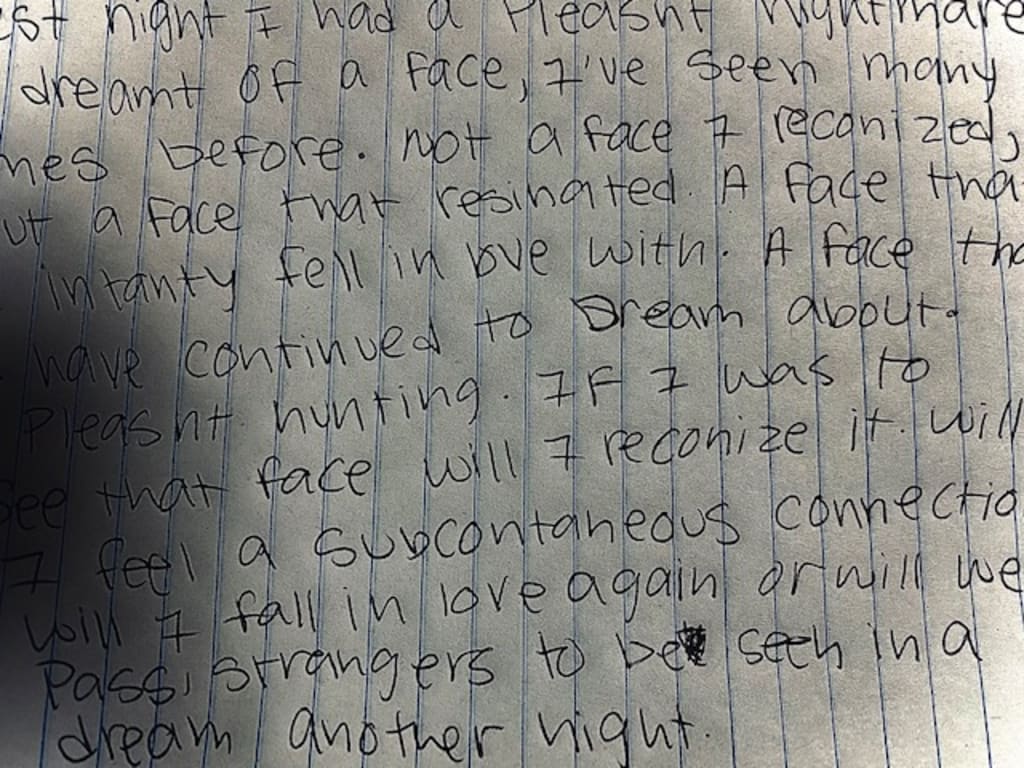 est night I had a Pleasnt nightmare
dreamt of a face, I've seen many
mes before. Not a face I reconized,
ut a face that resinated. A face tha
intanty fell in love with. A face tha
have continued to Dream about.
Pleasnt hunting. IF I was to
see that face will I reconize it. will
I feel a subcontaneous connectio
will I fall in love again or will we
Pass, strangers to be seen in a
dream another night.